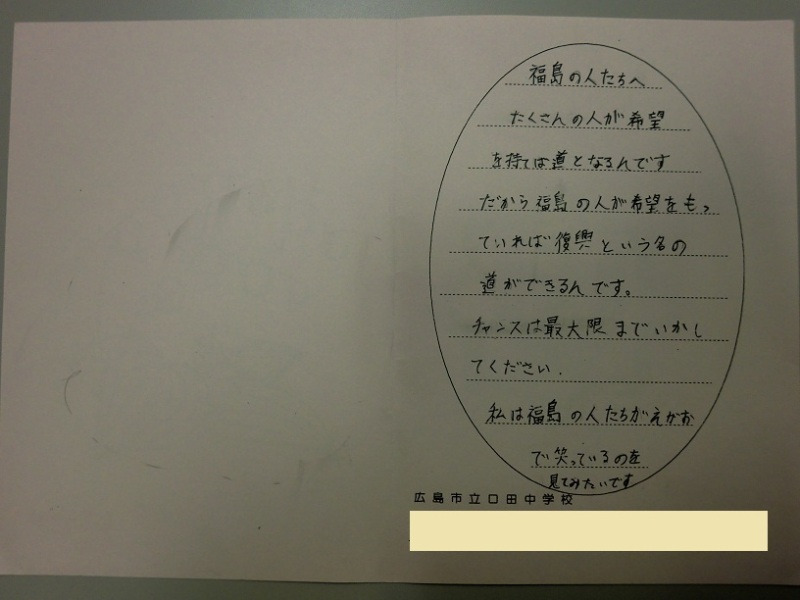 福島の人たちへ
たくさんの人が希望
を持てば道となるんです
だから福島の人が希望をもっ
ていれば復興という名の
道ができるんです。
チャンスは最大限までいかし
てください.
私は福島の人たちがえがお
で笑っているのを
見てみたいです
広島市立口田中学校